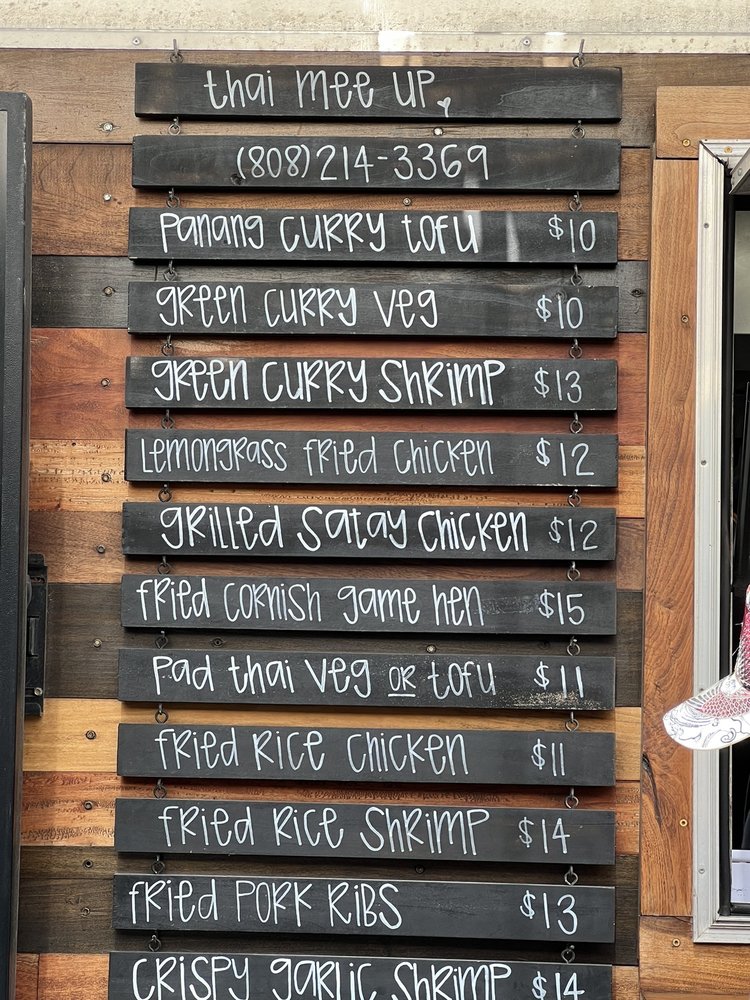 thai mee up
(808)214-3369
Panang curry tofu $10
green curry veg $10
green curry shrimp $13
Lemongrass fried chicken $12
grilled satay chicken $12
fried cornish game hen $15
Pad thai veg or tofu $11
fried rice chicken $11
fried rice shrimp $14
fried pork ribs $13
crispy garlic shrimp $14